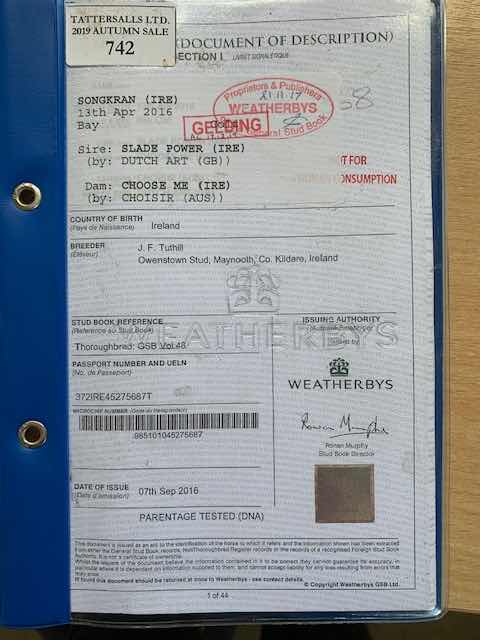 TATTERSALLS LTD.
2019 AUTUMN SALE
742
(DOCUMENT OF DESCRIPTION)
SECTION I LIVRET SIGNALETIQUE
SONGKRAN (IRE)
13th Apr 2016
Bay
Proprietors & Publishers
WEATHERBYS
General Stud Book
GELDING
58
Sire: SLADE POWER (IRE)
(by: DUTCH ART (GB))
Dam: CHOOSE ME (IRE)
(by: CHOISIR (AUS))
T FOR
ONSUMPTION
COUNTRY OF BIRTH
(Pays de Naissance) Ireland
BREEDER J. F. Tuthill
(Eléveur) Owenstown Stud, Maynooth, Co. Kildare, Ireland
WEATHERBYS
STUD BOOK REFERENCE
(Reference au Stud Book)
Thoroughbred: GSB Vol.48
ISSUING AUTHORITY
Issued by
WEATHERBYS
PASSPORT NUMBER AND UELN
(No. de Passeport)
372IRE45275687T
MICROCHIP NUMBER (Code du transpondeur)
985101045275687
Ronan Murphy
Ronan Murphy
Stud Book Director
DATE OF ISSUE 07th Sep 2016
(Date d'émission)
PARENTAGE TESTED (DNA)
This document is issued as an aid to the identification of the horse to which it refers and the information shown has been extracted
from either the General Stud Book records, Non/Thoroughbred Register records or the records of a recognised Foreign Stud Book
Authority. It is not a certificate of ownership.
Whilst the issuers of the document believe the information contained in it to be correct they cannot guarantee its accuracy, in
particular where it is dependent on information supplied to them, and cannot accept liability for any loss resulting from errors that
may arise.
If found this document should be returned in most convenient way to Weatherbys - see contact details.
© Copyright Weatherbys GSB Ltd.
1 of 44